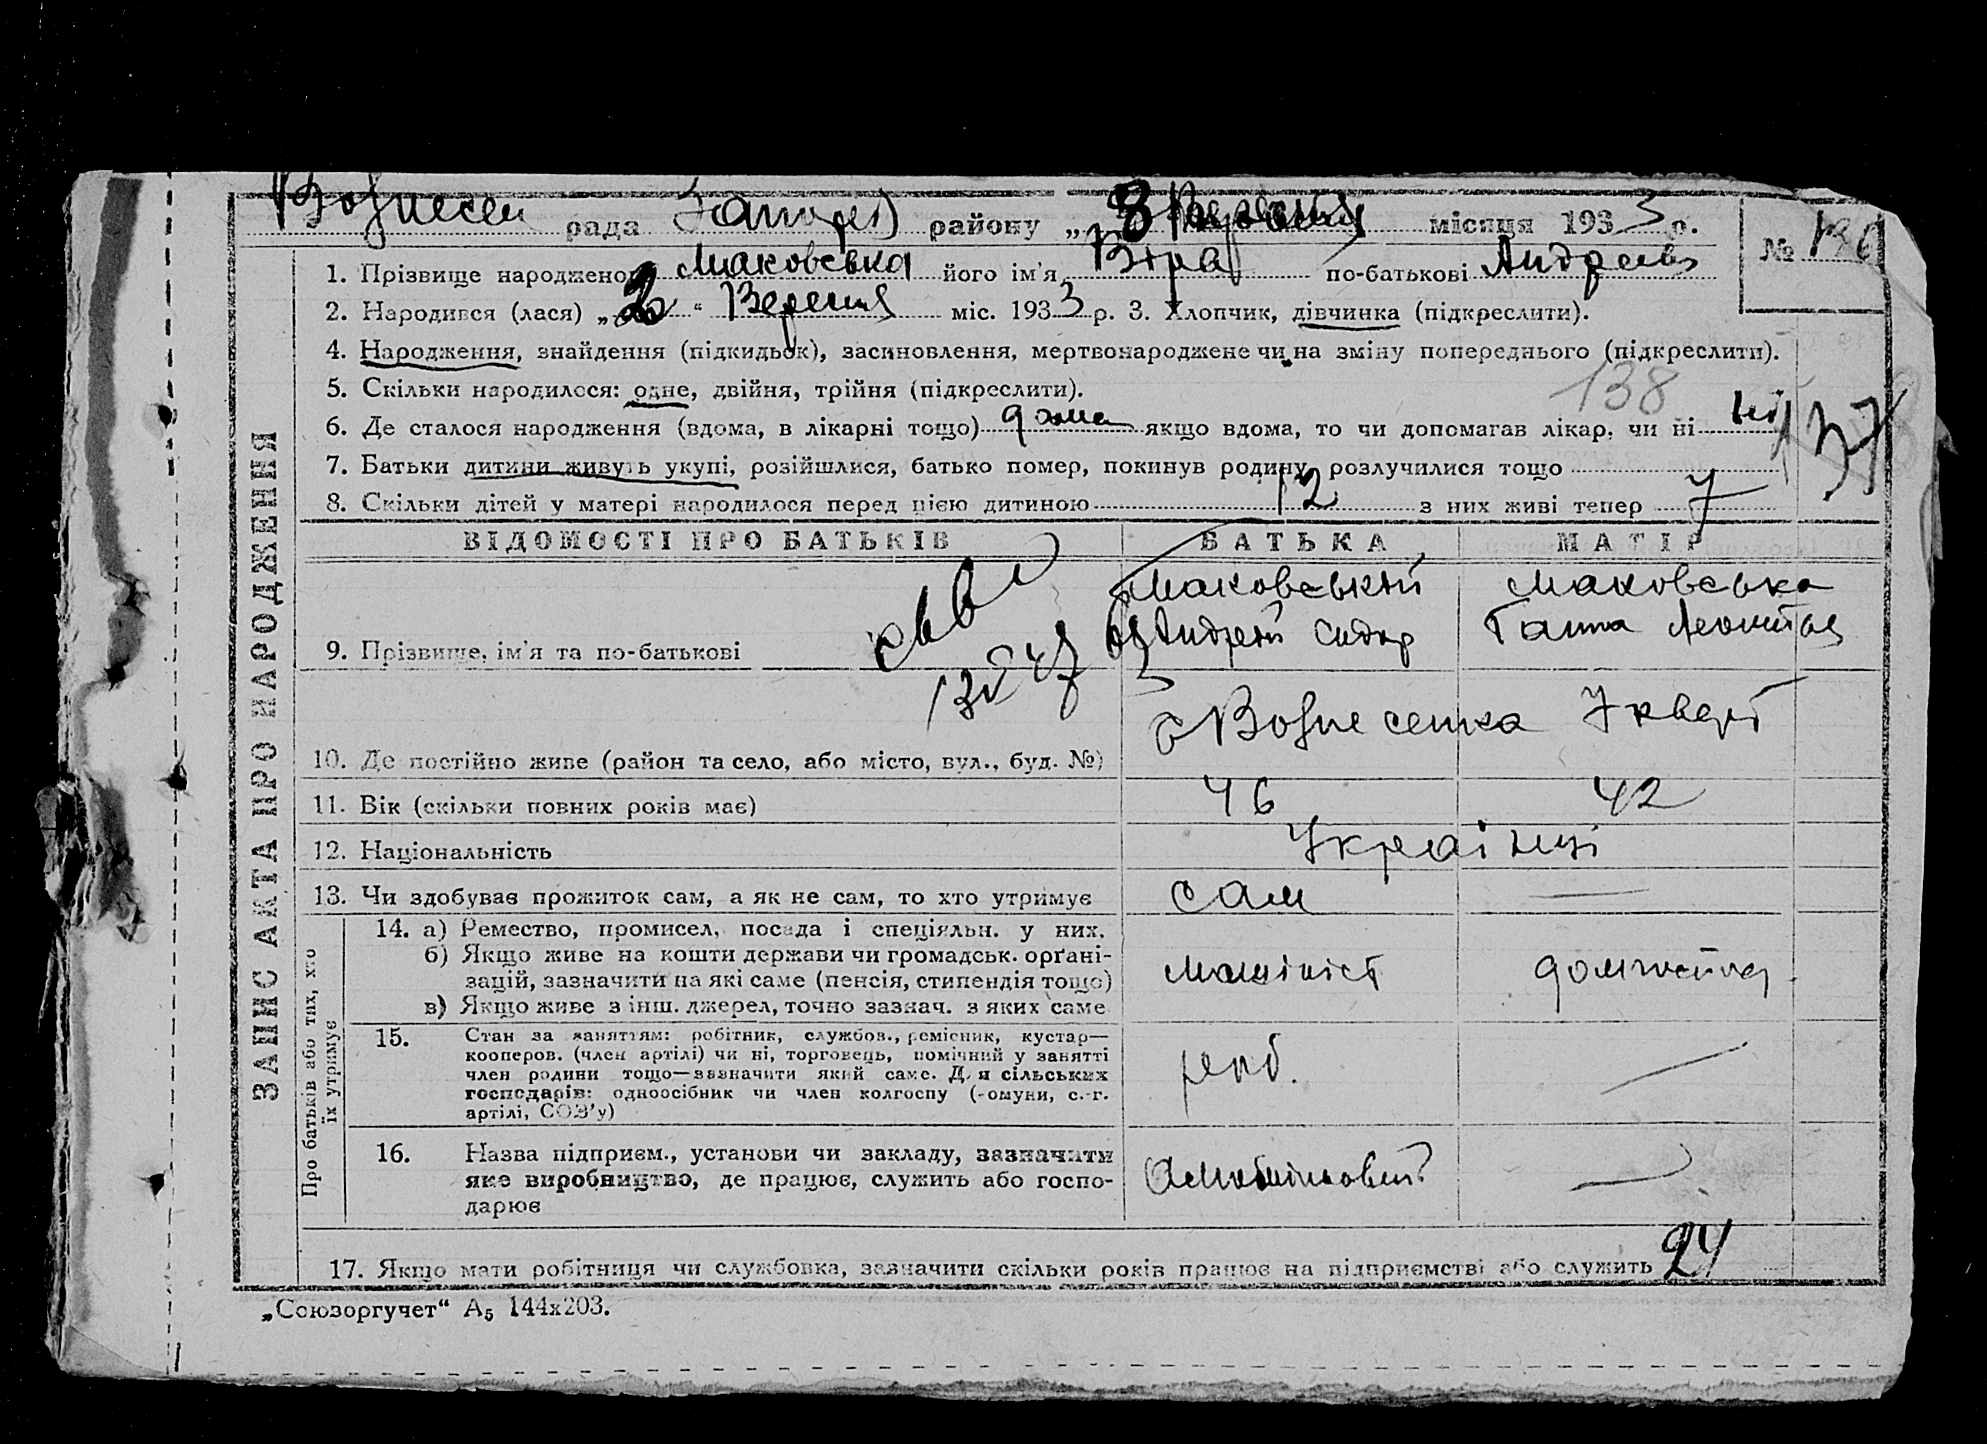 Вознесен рада Запоріз району „ 3 Вересня місяця 1933 р.
№ 136
1. Прізвище народженого Маковська його ім'я Віра по-батькові Андреев
2. Народився (лася) „ 2 “ Вересня міс. 1933 р. 3. Хлопчик, дівчинка (підкреслити).
4. Народження, знайдення (підкидьок), засиновлення, мертвонароджене чи на зміну попереднього (підкреслити).
5. Скільки народилося: одне, двійня, трійня (підкреслити).
138
6. Де сталося народження (вдома, в лікарні тощо) дома якщо вдома, то чи допомагав лікар, чи ні ні
137
7. Батьки дитини живуть укупі, розійшлися, батько помер, покинув родину, розлучилися тощо
8. Скільки дітей у матері народилося перед цією дитиною 12 з них живі тепер 7
ЗАПИС АКТА ПРО НАРОДЖЕННЯ
ВІДОМОСТІ ПРО БАТЬКІВ БАТЬКА МАТІР
Маковський Маковська
9. Прізвище, ім'я та по-батькові Андрей Сидор Ганна Леонтья
с Вознесенка 7 кварт
10. Де постійно живе (район та село, або місто, вул., буд. №)
11. Вік (скільки повних років має) 46 42
12. Національність Українці
13. Чи здобуває прожиток сам, а як не сам, то хто утримує сам —
Про батьків або тих, хто їх утримує
14. а) Ремество, промисел, посада і спеціяльн. у них.
б) Якщо живе на кошти держави чи громадськ. орґані-
зацій, зазначити на які саме (пенсія, стипендія тощо) машініст домгоспод
в) Якщо живе з інш. джерел, точно зазнач. з яких саме
15. Стан за заняттям: робітник, службов., ремісник, кустар—
кооперов. (член артілі) чи ні, торговець, помічний у занятті
член родини тощо—зазначити який саме. Для сільських роб. —
господарів: одноосібник чи член колгоспу (комуни, с.-г.
артілі, СОЗ'у)
16. Назва підприєм., установи чи закладу, зазначити
яке виробництво, де працює, служить або госпо- —
дарює
17. Якщо мати робітниця чи службовка, зазначити скільки років працює на підприємстві або служить 24
„Союзоргучет“ А₅ 144х203.